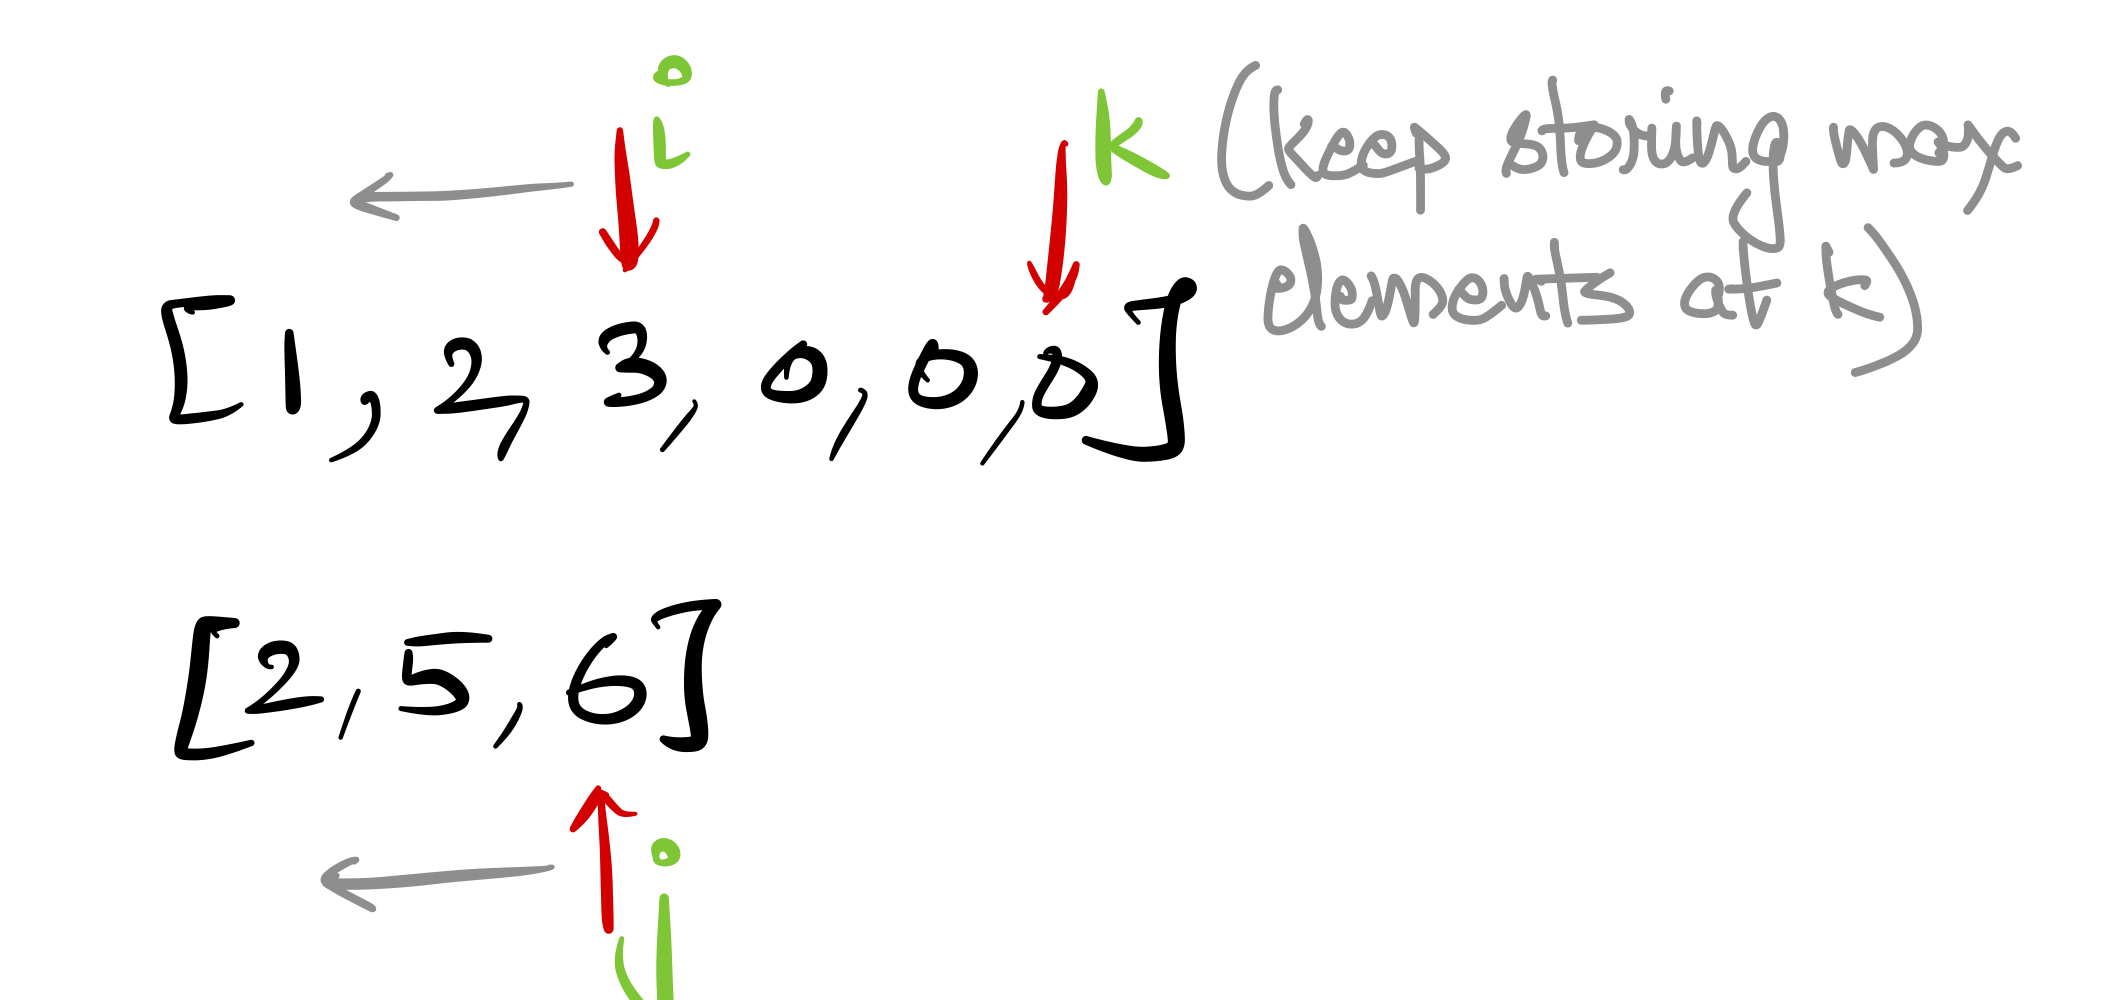 i
k (keep storing max
elements at k)
[1, 2, 3, 0, 0, 0]
[2, 5, 6]
j